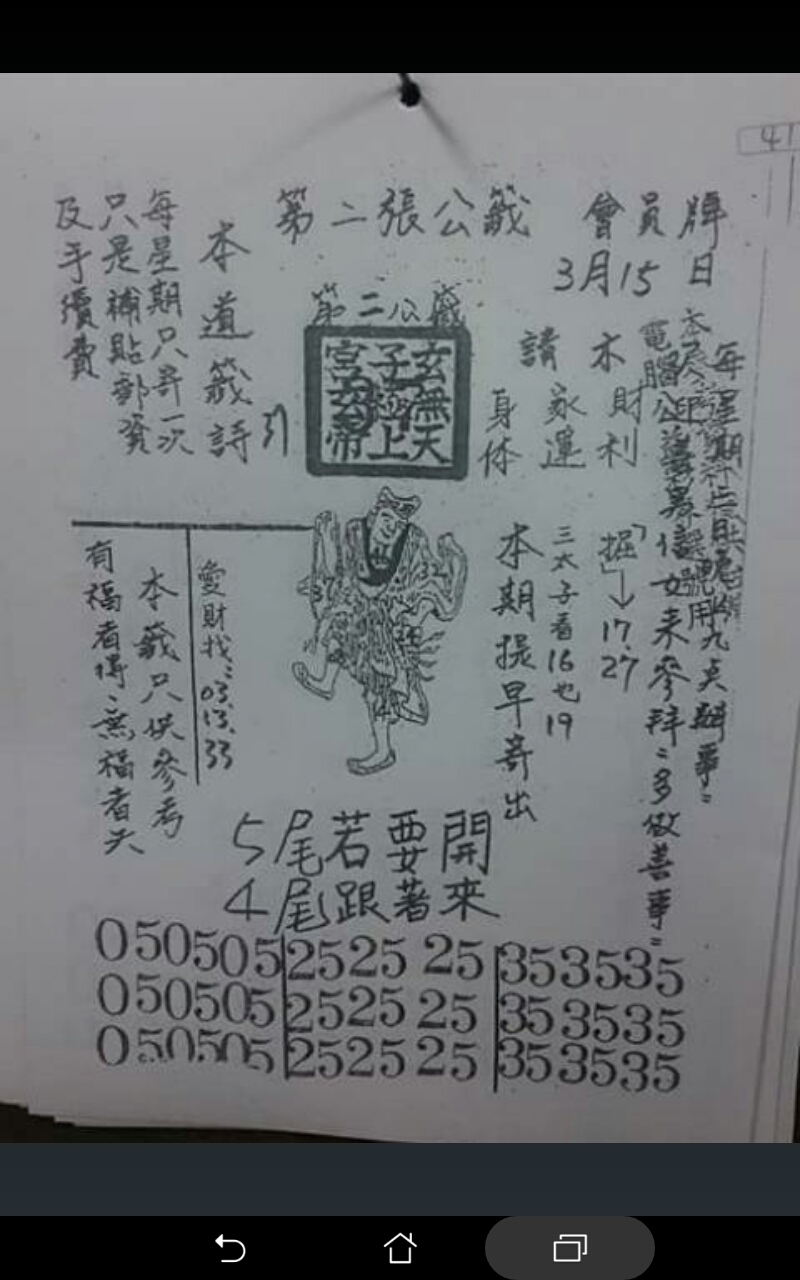 41
第二張公籤
會員牌
3月15日
第二公籤
玄無天
子 上
宮玄帝
每星期只寄一次
只是補貼郵資
及手續費
本道籤詩
引
木財利
請家運
身体
信女來參拜=多做善事=
九点辦事=
「掘」→17.27
三太子看16也19
本期提早寄出
愛財找:03.13.33
本籤只供參考
有福者得、無福者失
37
32
5尾若要開
4尾跟著來
050505 252525 353535
050505 252525 353535
050505 252525 353535